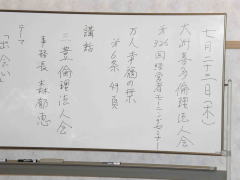 七月二十二日（木）
大洲喜多倫理法人会
才326回経営者モーニングセミナー
万人幸福の栞
才6条 49頁
講話
三豊倫理法人会
事務長 森郁恵
テーマ
「出会い